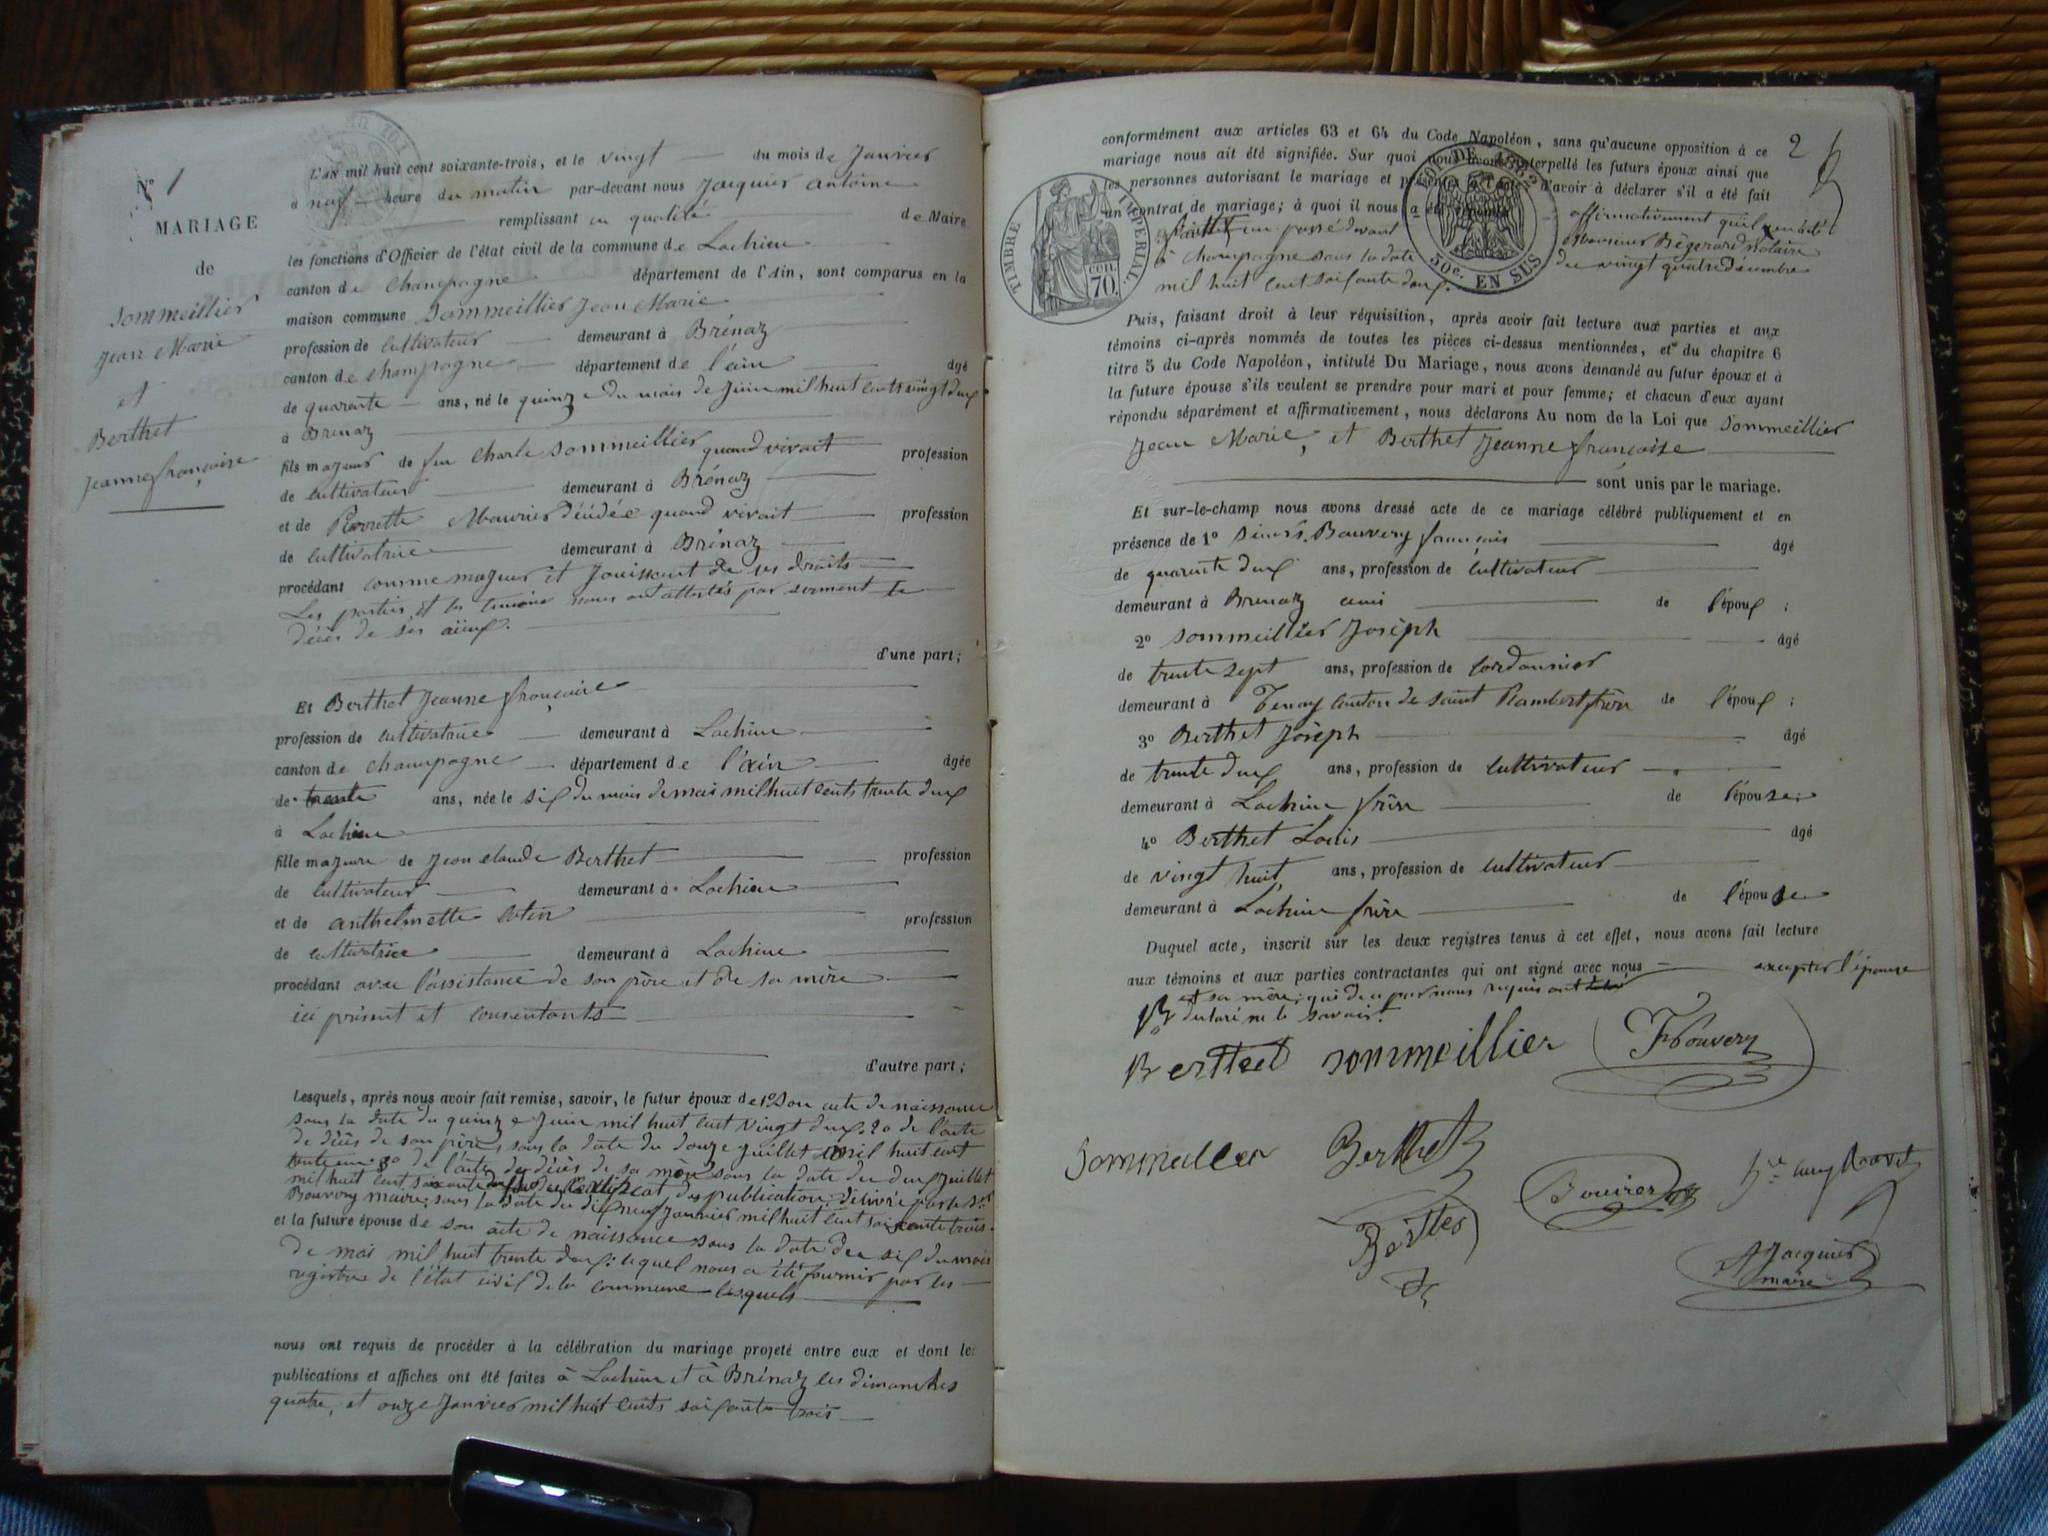 N° 1
MARIAGE
de
Sommeillier
Jean Marie
et
Berthet
Jeanne françoise
L'an mil huit cent soixante-trois, et le vingt du mois de Janvier
à neuf heure du matin par-devant nous Jacquier antoine
remplissant en qualité de Maire
les fonctions d'Officier de l'état civil de la commune de Lochieu
canton de Champagne département de l'Ain, sont comparus en la
maison commune Sommeillier Jean Marie
profession de cultivateur demeurant à Brénaz
canton de champagne département de l'ain âgé
de quarente ans, né le quinze du mois de Juin mil huit cents vingt deux
à Brénaz
fils majeur de feu Charle Sommeillier quand vivait profession
de cultivateur demeurant à Brénaz
et de Pierrette Meunier décédée quand vivait profession
de cultivatrice demeurant à Brénaz
procédant comme majeur et Jouissant de ses droits
Les parties et les temoins nous ont attestés par serment le
décès de ses aïeux.
d'une part;
Et Berthet Jeanne françoise
profession de cultivatrice demeurant à Lochieu
canton de champagne département de l'ain âgée
de trente ans, née le six du mois de mai mil huit cents trente deux
à Lochieu
fille majeure de Jean claude Berthet profession
de cultivateur demeurant à Lochieu
et de anthelmette profession
de cultivatrice demeurant à Lochieu
procédant avec l'assistance de son père et de sa mère
ici présent et consentants
d'autre part;
Lesquels, après nous avoir fait remise, savoir, le futur époux de 1° Son acte de naissance
sous la date du quinze Juin mil huit cent vingt deux. 2o de l'acte
de décès de son père sous la date du douze Juillet mil huit cent
trente un 3o de l'acte de décès de sa mère sous la date du deux Juillet
mil huit cent soixante certificat des publication délivré par le Sr
Bouvery maire, sous la date du dix neuf Janvier mil huit cent soixante trois
et la future épouse de son acte de naissance sous la date du six du mois
de mai mil huit trente deux: lequel nous a été fournir par les
registres de l'état civil de la commune lesquels
nous ont requis de procéder à la célébration du mariage projeté entre eux et dont les
publications et affiches ont été faites à Lochieu et à Brénaz les dimanches
quatre, et onze Janvier mil huit cents soixante trois
2
conformément aux articles 63 et 64 du Code Napoléon, sans qu'aucune opposition à ce
mariage nous ait été signifiée. Sur quoi nous avons interpellé les futurs époux ainsi que
les personnes autorisant le mariage et présentes à l'acte d'avoir à déclarer s'il a été fait
un contrat de mariage; à quoi il nous a été répondu affirmativement qu'il en a été
un passé devant monsieur Bégerard notaire
à Champagne sous la date du vingt quatre décembre
mil huit cent soixante deux.
TIMBRE IMPERIAL
70.
DE 1862
50c. EN SUS
Puis, faisant droit à leur réquisition, après avoir fait lecture aux parties et aux
témoins ci-après nommés de toutes les pièces ci-dessus mentionnées, et du chapitre 6
titre 5 du Code Napoléon, intitulé Du Mariage, nous avons demandé au futur époux et à
la future épouse s'ils veulent se prendre pour mari et pour femme; et chacun d'eux ayant
répondu séparément et affirmativement, nous déclarons Au nom de la Loi que Sommeillier
Jean Marie, et Berthet Jeanne françoise
sont unis par le mariage.
Et sur-le-champ nous avons dressé acte de ce mariage célébré publiquement et en
présence de 1° Sieurs. Bouvery françois âgé
de quarente deux ans, profession de cultivateur
demeurant à Brenaz ami de l'époux;
2° Sommeillier Joseph âgé
de trente sept ans, profession de Cordonnier
demeurant à Tenay canton de saint Rambert frère de l'époux;
3° Berthet Joseph âgé
de trente deux ans, profession de cultivateur
demeurant à Lochieu frère de l'épouse;
4° Berthet Louis âgé
de vingt huit ans, profession de cultivateur
demeurant à Lochieu frère de l'épouse
Duquel acte, inscrit sur les deux registres tenus à cet effet, nous avons fait lecture
aux témoins et aux parties contractantes qui ont signé avec nous excepter l'épouse
et sa mère; qui de ce par nous requis ont
déclaré ne le savoir.
Berthet Sommeillier F Bouvery
Sommeiller Berthet
Bouvier
Berthet
A Jacquier
maire